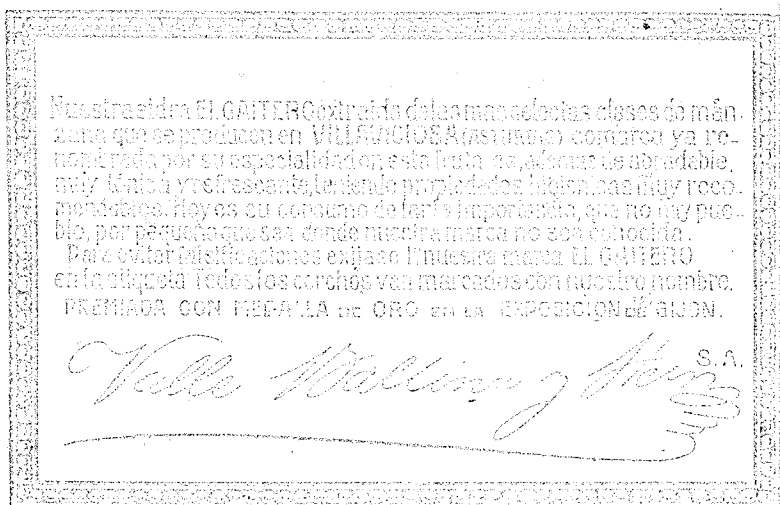 Nuestra sidra EL GAITERO extraida de las mas selectas clases de man-
zana que se producen en VILLAVICIOSA (ASTURIAS) comarca ya re-
nombrada por su especialidad en esta fruta es, ademas de agradable,
muy tónica y refrescante, teniendo propiedades higienicas muy reco-
mendables. Hoy es su consumo de tanta importancia, que no hay pue-
blo, por pequeño que sea donde nuestra marca no sea conocida.
Para evitar falsificaciones exijase nuestra marca EL GAITERO
en la etiqueta Todos los corchos van marcados con nuestro nombre.
PREMIADA CON MEDALLA DE ORO EN LA EXPOSICION DE GIJON.
Valle Ballina y
S.A.